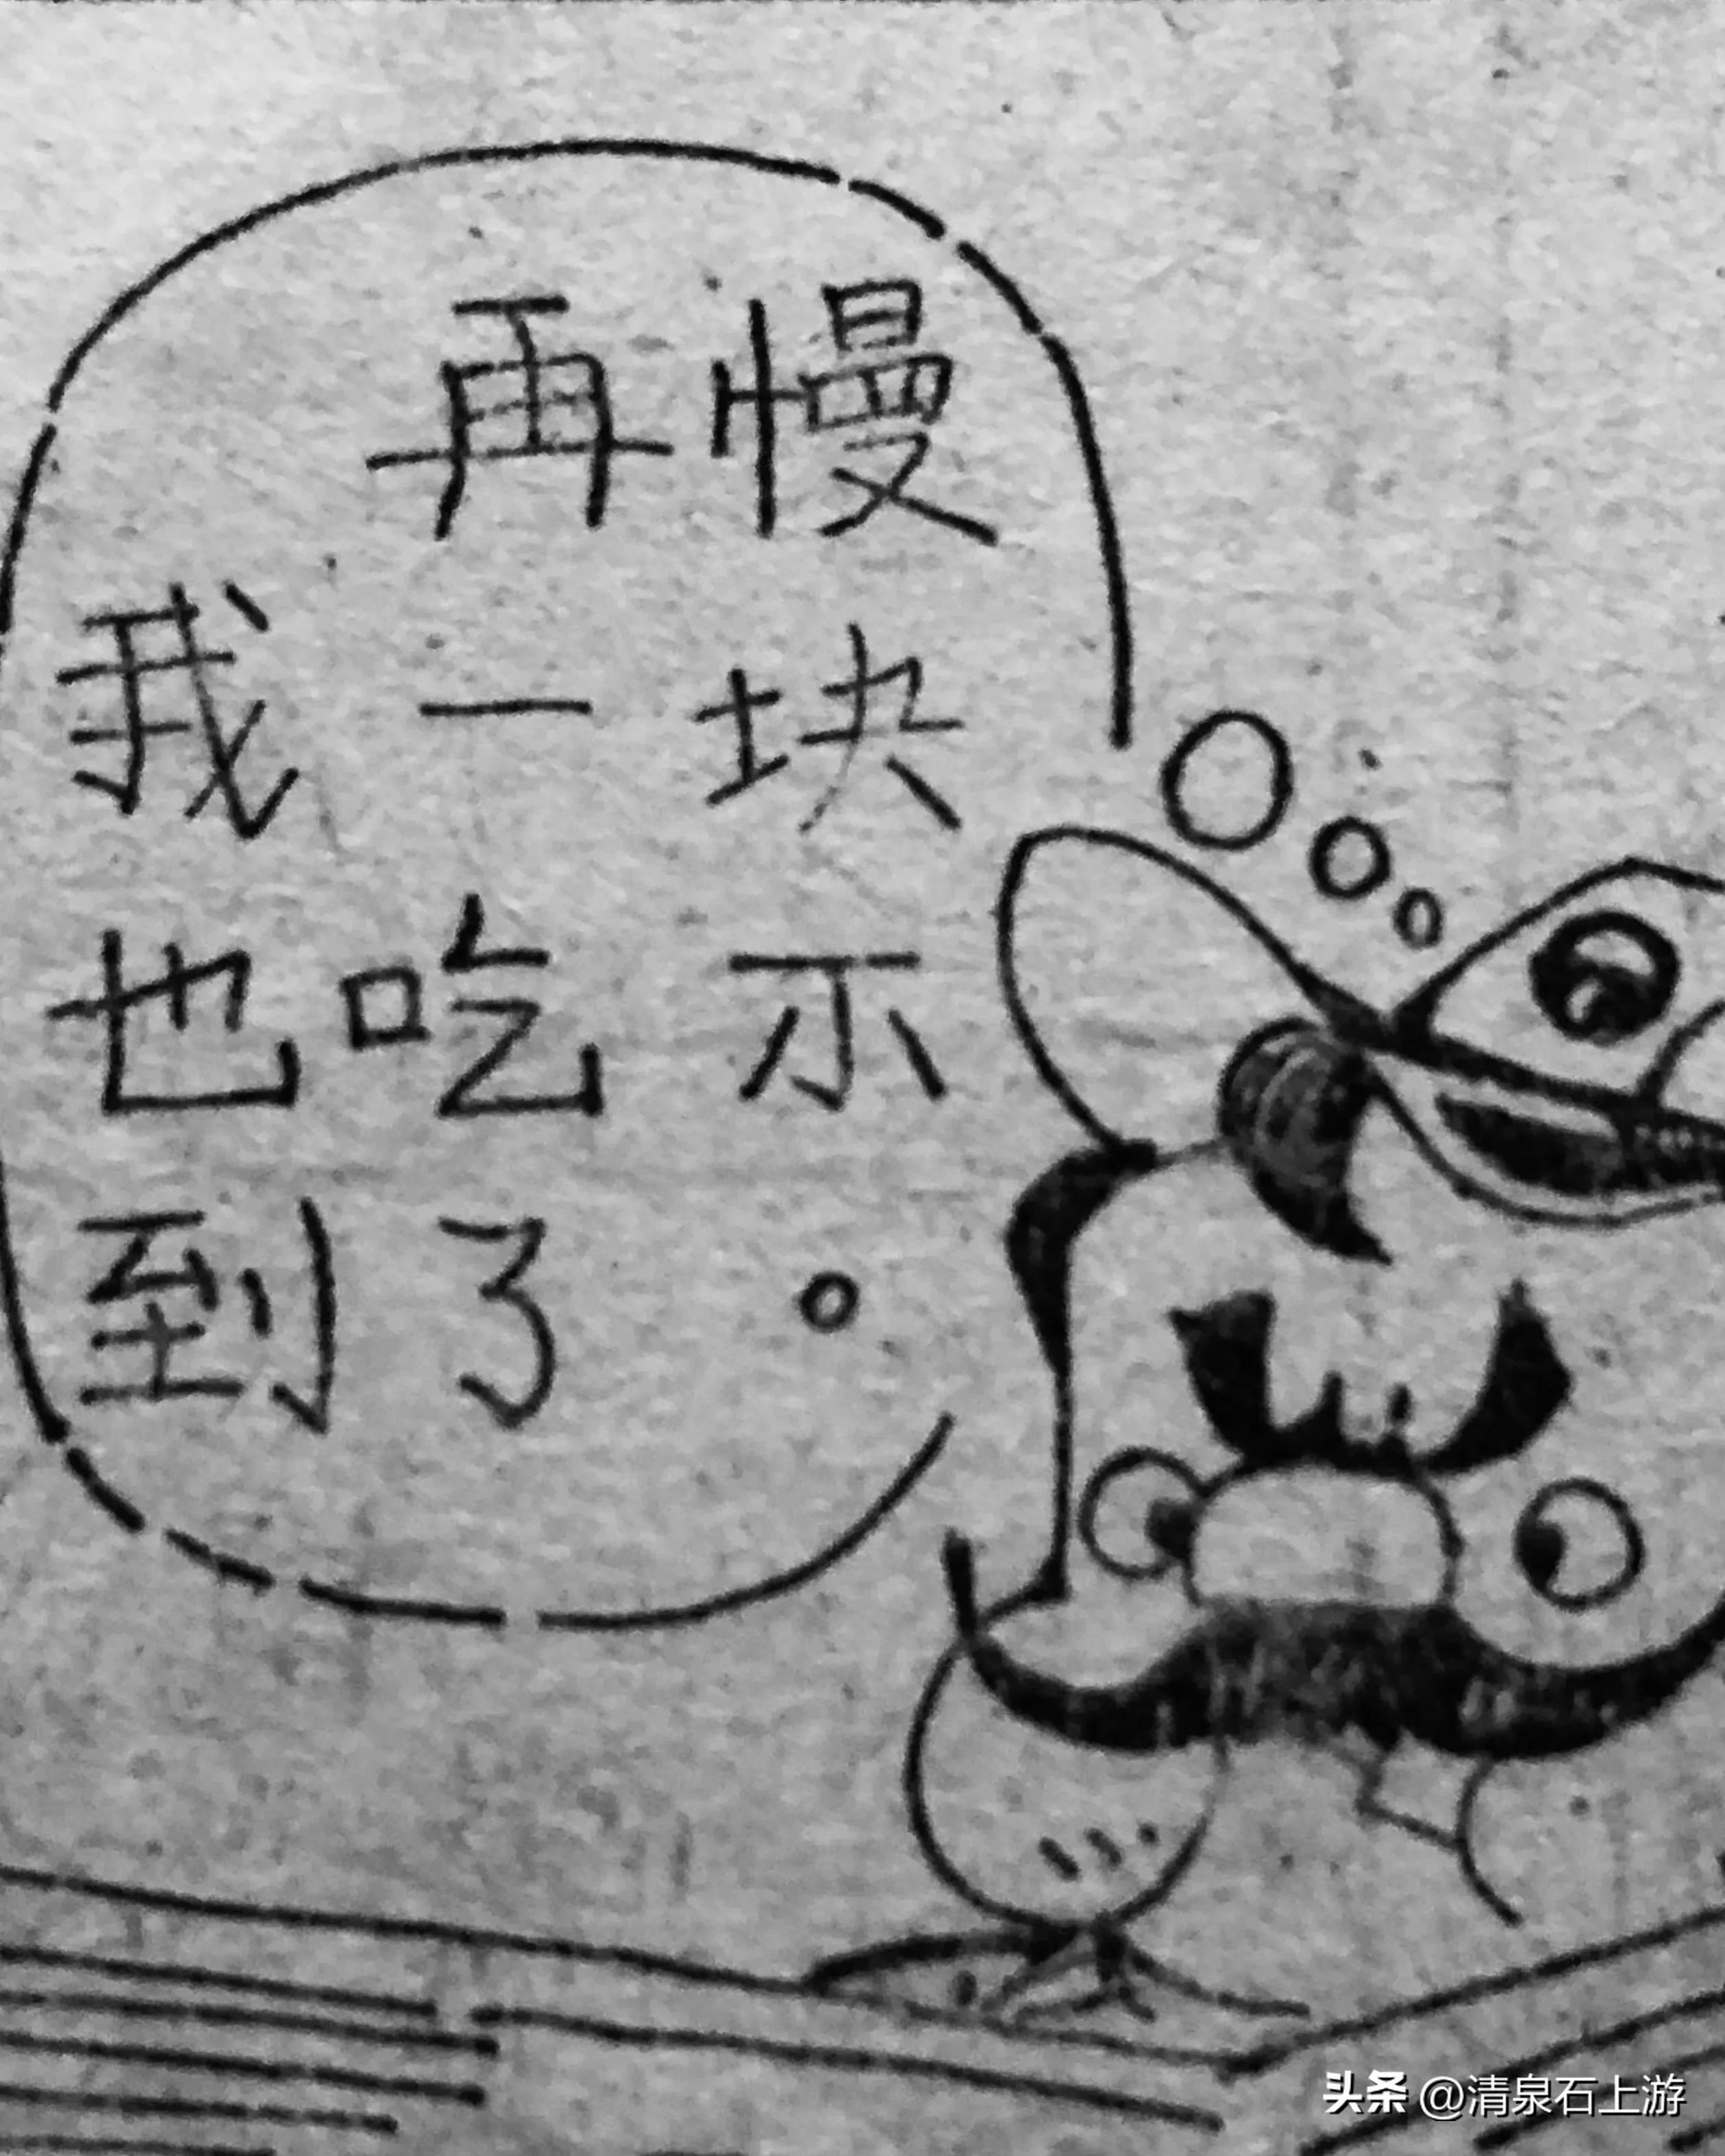 再慢
我一块
也吃不
到了。
头条 @清泉石上游